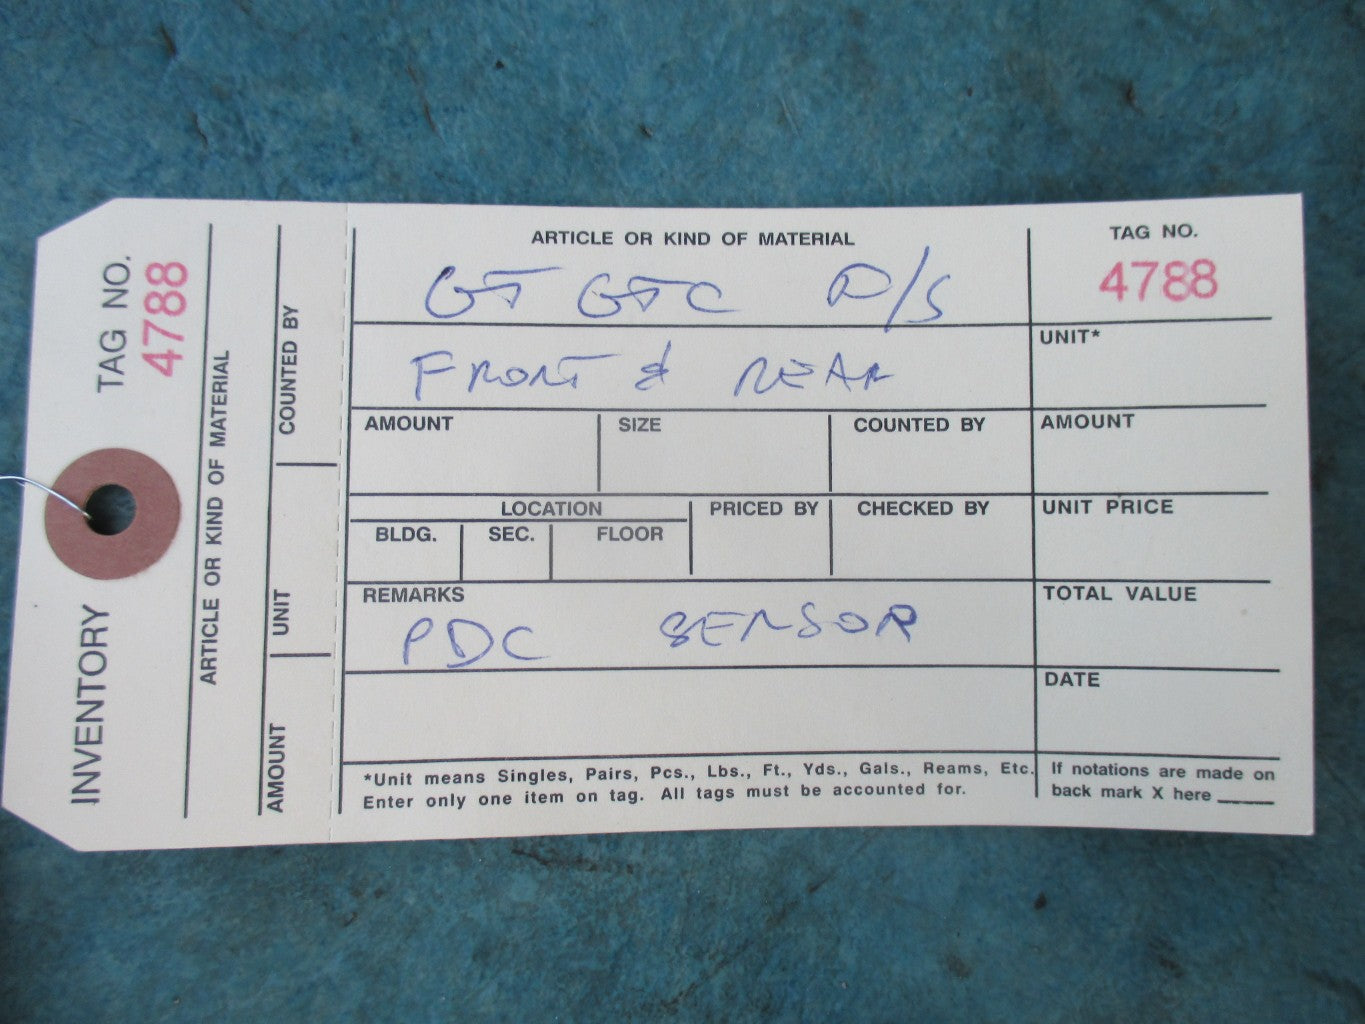 TAG NO.
4788
INVENTORY
ARTICLE OR KIND OF MATERIAL
COUNTED BY
UNIT
AMOUNT
ARTICLE OR KIND OF MATERIAL
GT GTC P/S
FRONT & REAR
TAG NO.
4788
UNIT*
AMOUNT SIZE COUNTED BY AMOUNT
LOCATION PRICED BY CHECKED BY UNIT PRICE
BLDG. SEC. FLOOR
REMARKS TOTAL VALUE
PDC SENSOR
DATE
*Unit means Singles, Pairs, Pcs., Lbs., Ft., Yds., Gals., Reams, Etc.
Enter only one item on tag. All tags must be accounted for.
If notations are made on
back mark X here